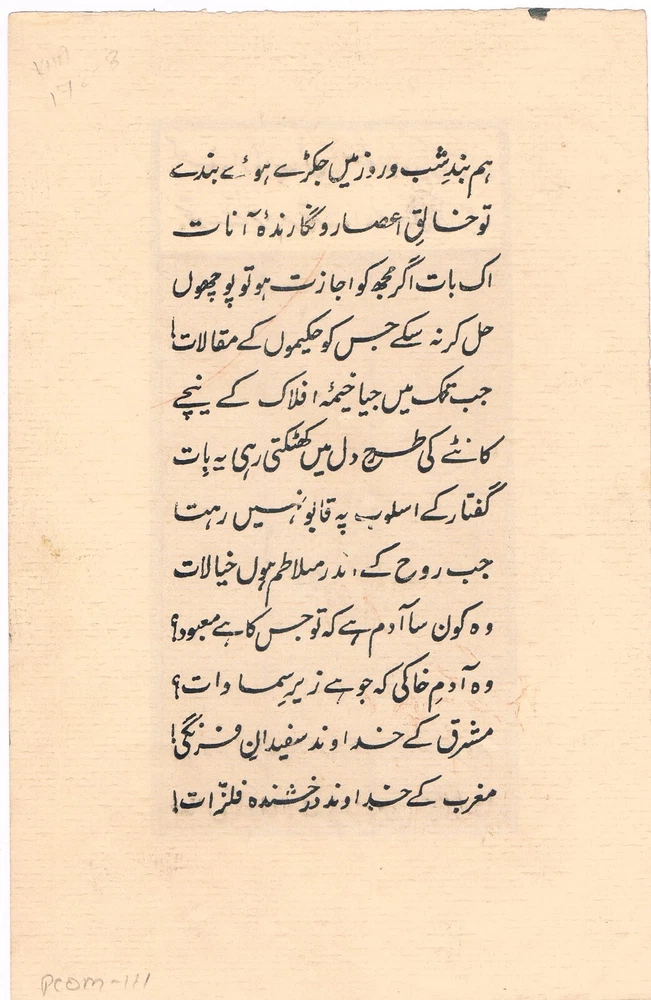 ہم بندِ شب و روز میں جکڑے ہوئے بندے
تو خالقِ اعصار و نگارندۂ آنات
اک بات اگر مجھ کو اجازت ہو تو پوچھوں
حل کر نہ سکے جس کو حکیموں کے مقالات!
جب تک میں جیا خیمۂ افلاک کے نیچے
کانٹے کی طرح دل میں کھٹکتی رہی یہ بات
گفتار کے اسلوب پہ قابو نہیں رہتا
جب روح کے اندر متلاطم ہوں خیالات
وہ کون سا آدم ہے کہ تو جس کا ہے معبود؟
وہ آدمِ خاکی کہ جو ہے زیرِ سماوات؟
مشرق کے خداوند سفیدانِ فرنگی!
مغرب کے خداوند درخشندہ فلزّات!
PCOM-111